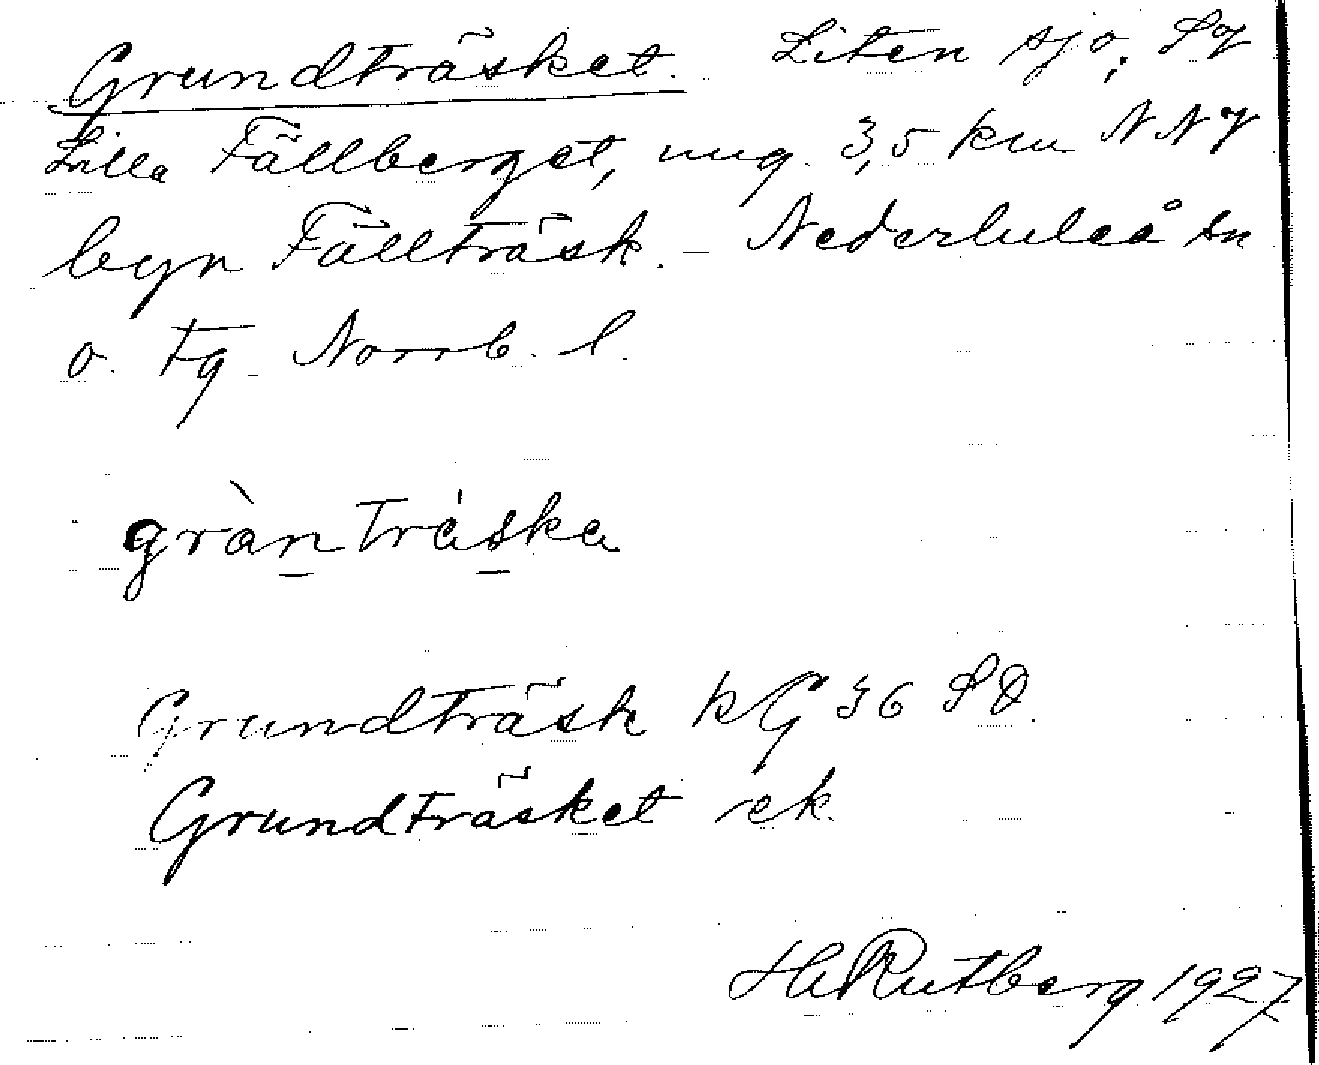 Grundträsket. Liten sjö; SV
Lilla Fällberget, ung. 3,5 km NNV
byn Fällträsk. - Nederluleå sn
o. tg. Norrb. l.
grànträska
Grundträsk kG 36 SO.
Grundträsket ek.
H Rutberg 1927